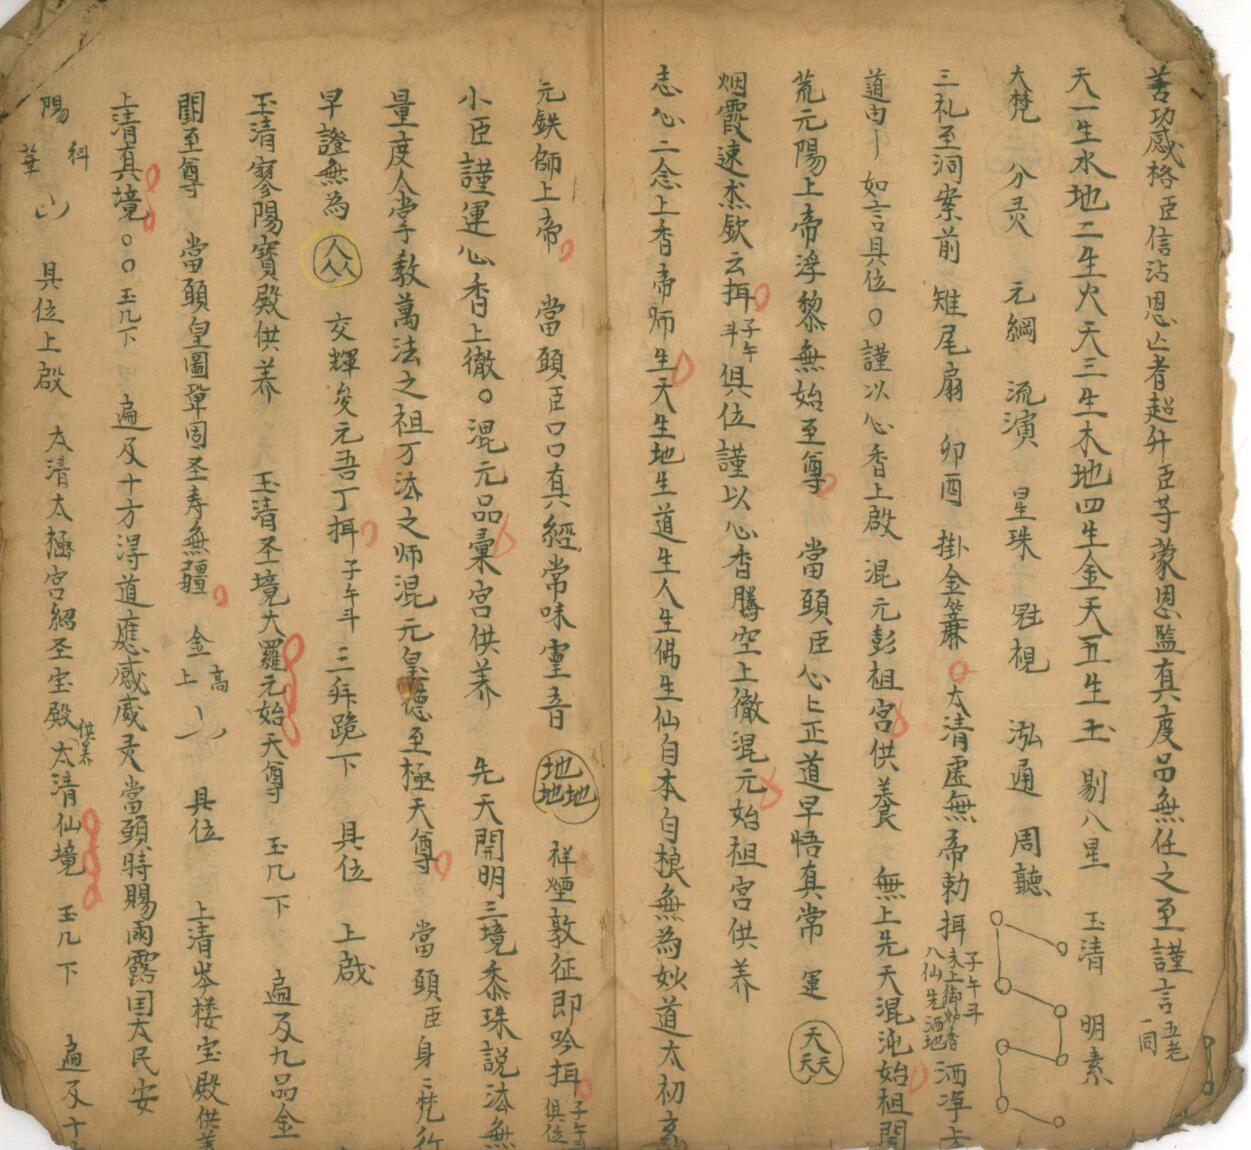 善功感格臣信沾恩亡者超升臣等蒙恩監真度品無任之至謹言五老一同
天一生水地二生火天三生木地四生金天五生土 剔八星 玉清 明素
大梵 分灵 元綱 流演 星珠 冠視 泓通 周聽
三礼至洞案前 雉尾扇 卯酉 掛金簾 太清虛無帝勅揖子午斗未上御炉香八仙先洒地洒淨
道由 如言具位〇謹以心香上啟 混元彭祖宮供養 無上先天混沌始祖開
荒元陽上帝浮黎無始至尊 當願臣心上正道早悟真常 運 天天天
烟霞速 欽云揖子午斗俱位謹以心香騰空上徹混元始祖宮供养
志心二念上香帝师生天生地生道生人生佛生仙自本自根無為妙道太初玄
元鉄師上帝 當願臣口口真經常味灵音 地地地 祥煙敦征即吟揖子午斗俱位
小臣謹運心香上徹〇混元品彙宮供养 先天開明三境黍珠説法無
量度人掌教萬法之祖万法之师混元皇德至極天尊 當願臣身
早證無為 人人人 交輝 元吾丁揖子午斗三拜跪下 具位 上啟
玉清寥陽寶殿供养 玉清圣境大羅元始天尊 玉几下 遍及九品金
闕至尊 當願皇圖鞏固圣寿無疆 金上高 具位 上清岑楼宝殿供养
上清真境〇〇玉几下 遍及十方淂道應感威灵當願時賜雨露国大民安
陽科華 具位上啟 太清太極宮紹圣宝殿供养太清仙境 玉几下 遍及十